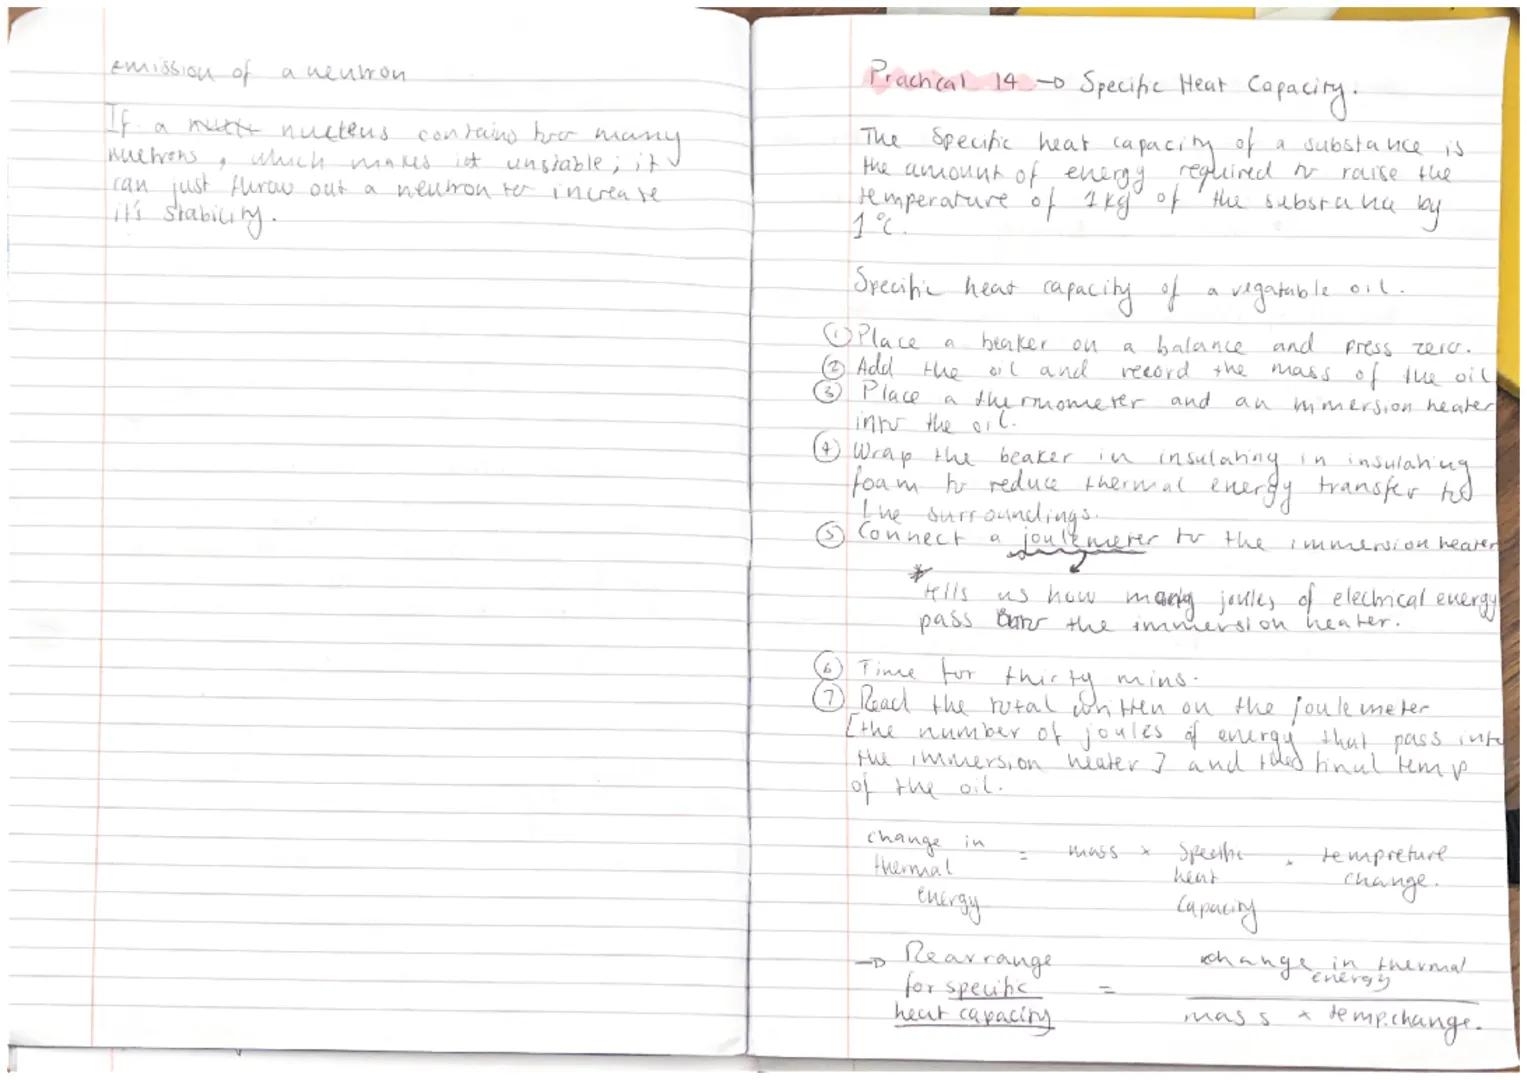 emission of a neutron
If a nucleus contains too many
nuetrons, which makes it unstable; it
can just throw out a neutron to increase
it's stability.
Practical 14 → Specific Heat Capacity.
The Specific heat capacity of a substance is
the amount of energy required to raise the
temperature of 1kg of the substance by
1°C.
Specific heat capacity of a vegatable oil.
① Place a beaker on a balance and press zero.
② Add the oil and record the mass of the oil
③ Place a thermometer and an immersion heater
into the oil.
④ Wrap the beaker in insulating in insulating
foam to reduce thermal energy transfer to
the surroundings.
⑤ Connect a joulemeter to the immersion heater
* tells us how many joules of electrical energy
pass into the immersion heater.
⑥ Time for thirty mins.
⑦ Read the total written on the joulemeter
[the number of joules of energy that pass into
the immersion heater] and the final temp
of the oil.
change in thermal energy = mass × Specific heat capacity × tempreture change.
→ Rearrange for specific heat capacity = change in thermal energy
mass × temp.change.